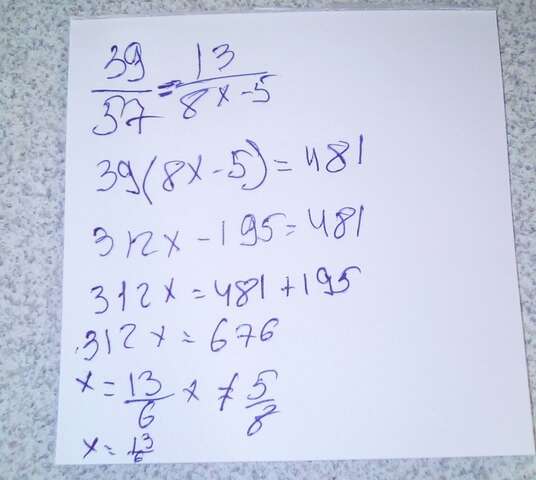 39/57 = 13/8x-5
39(8x-5)=481
312x-195=481
312x=481+195
312x=676
x=13/6 x ≠ 5/8
x=13/6